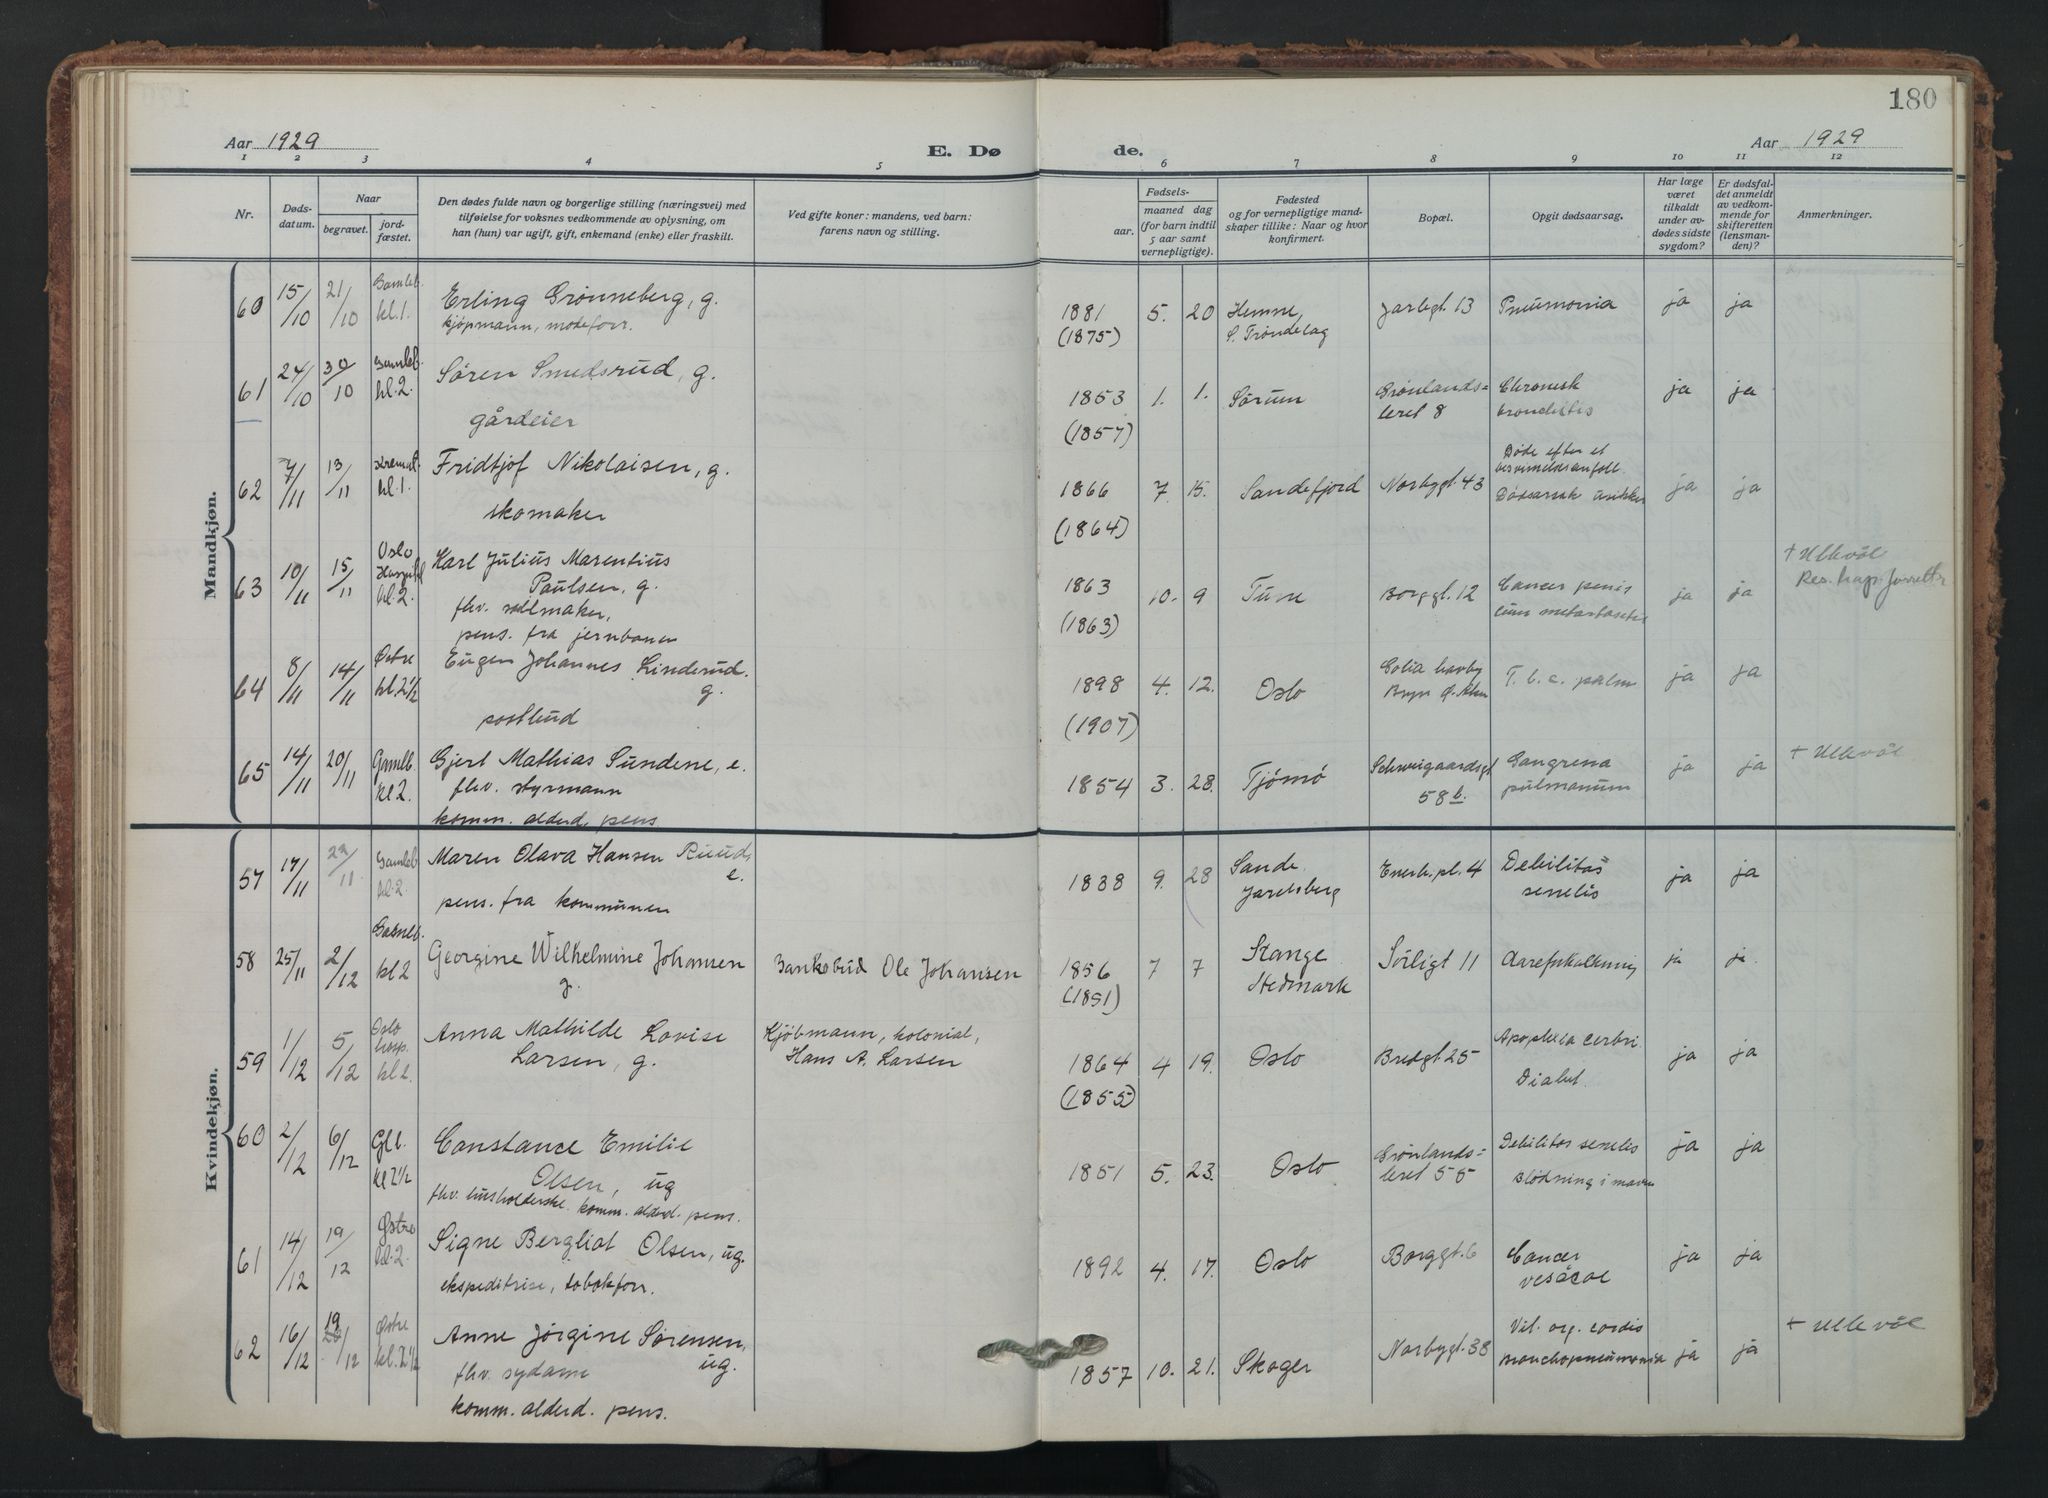 180
Aar 1929
E. Dø
de.
Aar 1929
1 2 3 4 5 6 7 8 9 10 11 12
Nr.
Døds-
datum.
Naar
begravet.
jord-
fæstet.
Den dødes fulde navn og borgerlige stilling (næringsvei) med
tilføielse for voksnes vedkommende av oplysning, om
han (hun) var ugift, gift, enkemand (enke) eller fraskilt.
Ved gifte koner: mandens, ved barn:
farens navn og stilling.
Fødsels-
aar.
maaned dag
(for barn indtil
5 aar samt
vernepligtige).
Fødested
og for vernepligtige mand-
skaper tillike: Naar og hvor
konfirmert.
Bopæl.
Opgit dødsaarsag.
Har læge
været
tilkaldt
under av-
dødes sidste
sygdom?
Er dødsfal-
det anmeldt
av vedkom-
mende for
skifteretten
(lensman-
den)?
Anmerkninger.
Mandkjøn.
60 15/10 21/10 Gamleb. kl.1. Erling Grønneberg, g. 1881 5. 20 Hemne, Jarlegt. 13 Pneumonia ja ja
kjøpmann, moteforr. (1875) S. Trøndelag
61 24/10 30/10 Gamleb. kl.2. Søren Smedsrud, g. 1853 1. 1. Sørum Grønlands= Chronisk ja ja
gårdeier (1857) leret 8 bronchitis
62 7/11 13/11 Kremat. kl.1. Fridtjof Nikolaisen, g. 1866 7 15. Sandefjord Norbygt. 43 Døde efter et
skomaker (1864) Dødsårsak ja ja
63 10/11 15/11 Oslo Hospital kl.2. Karl Julius Marentius 1863 10. 9 Tune Borggt. 12 Cancer penis ja ja + Ullevål
Paulsen, g. (1863) cum metastaser Res. kap. forretter
fhv. salmaker,
pens. fra jernbanen
64 8/11 14/11 Østre kl.2½ Eugen Johannes Linderud. 1898 4. 12. Oslo T. b. c. pulm ja ja
g. (1907) Bryn
postbud
65 14/11 20/11 Gamlb. kl.2. Gjert Mathias Sundene, e. 1854 3. 28. Tjømø Schweigaardsgt Gangrena ja ja + Ullevål
fhv. styrmann 58 b. pulmonum
komm. alderd. pens
Kvindekjøn.
57 17/11 22/11 Gamleb. kl.2 Maren Olava Hansen Ruud, 1838 9. 28 Sande. Enerh. pl. 4 Debilitas ja ja
e. Jarlsberg senelis
pens. fra kommunen
58 25/11 2/12 Gamleb. kl 2 Georgine Wilhelmine Johansen Bankobud Ole Johansen 1856 7 7 Stange Sörligt 11 Aareforkalkning ja ja.
g. (1851) Hedmark
59 1/12 5/12 Oslo hosp. kl 2. Anna Mathilde Lovise Kjøbmann, kolonial, 1864 4 19. Oslo Bredgt 25 Apoplexia cerbri. ja ja
Larsen, g. Hans A. Larsen (1855) Diabet.
60 2/12 6/12 Gl b. kl 2½ Constance Emilie 1851 5. 23. Oslo Grønlands= Debilitas senelis ja ja
Olsen, ug leret 55 Blødning i maven
fhv. husholderske. komm. alderd. pens.
61 14/12 19/12 Østre kl.2. Signe Bergliot Olsen, ug. 1892 4. 17. Oslo Borggt. 6 Cancer ja ja
ekspeditrise, tobakforr. vesicae
62 16/12 19/12 Østre kl.2½ Anne Jørgine Sørensen, 1857 10. 21. Skoger Norbygt. 38 Vit. org. cordis ja ja + Ullevål
ug. Bronchopneumonia
fhv. sydame
komm. alderd. pens.